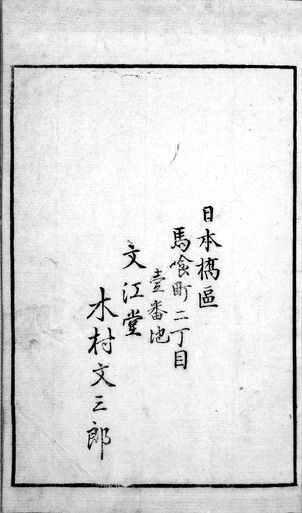 日本橋區
馬喰町二丁目
壹番地
文江堂
木村文三郎